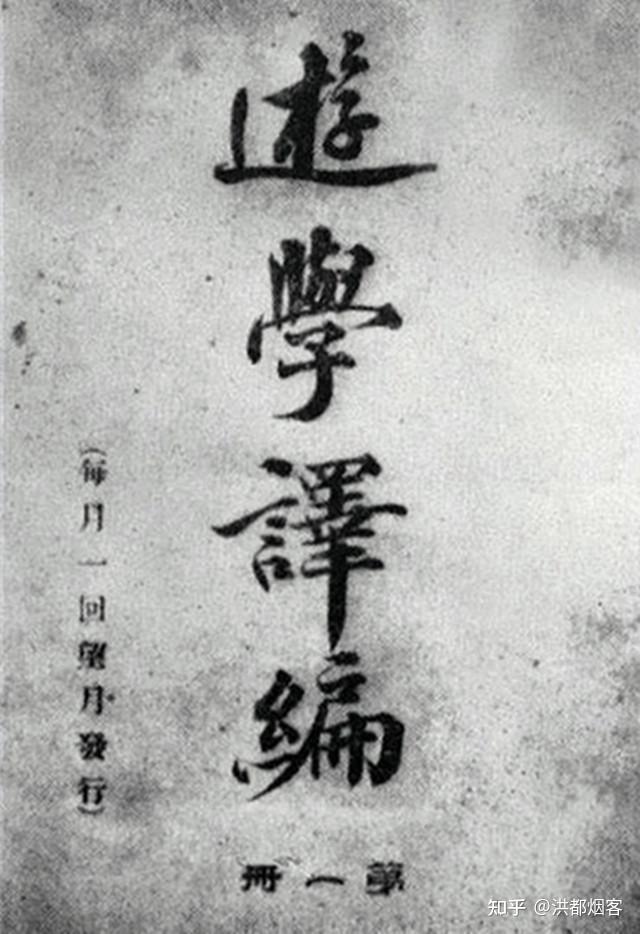 遊學譯編
(每月一回望月發行)
第一冊
知乎 @洪都烟客